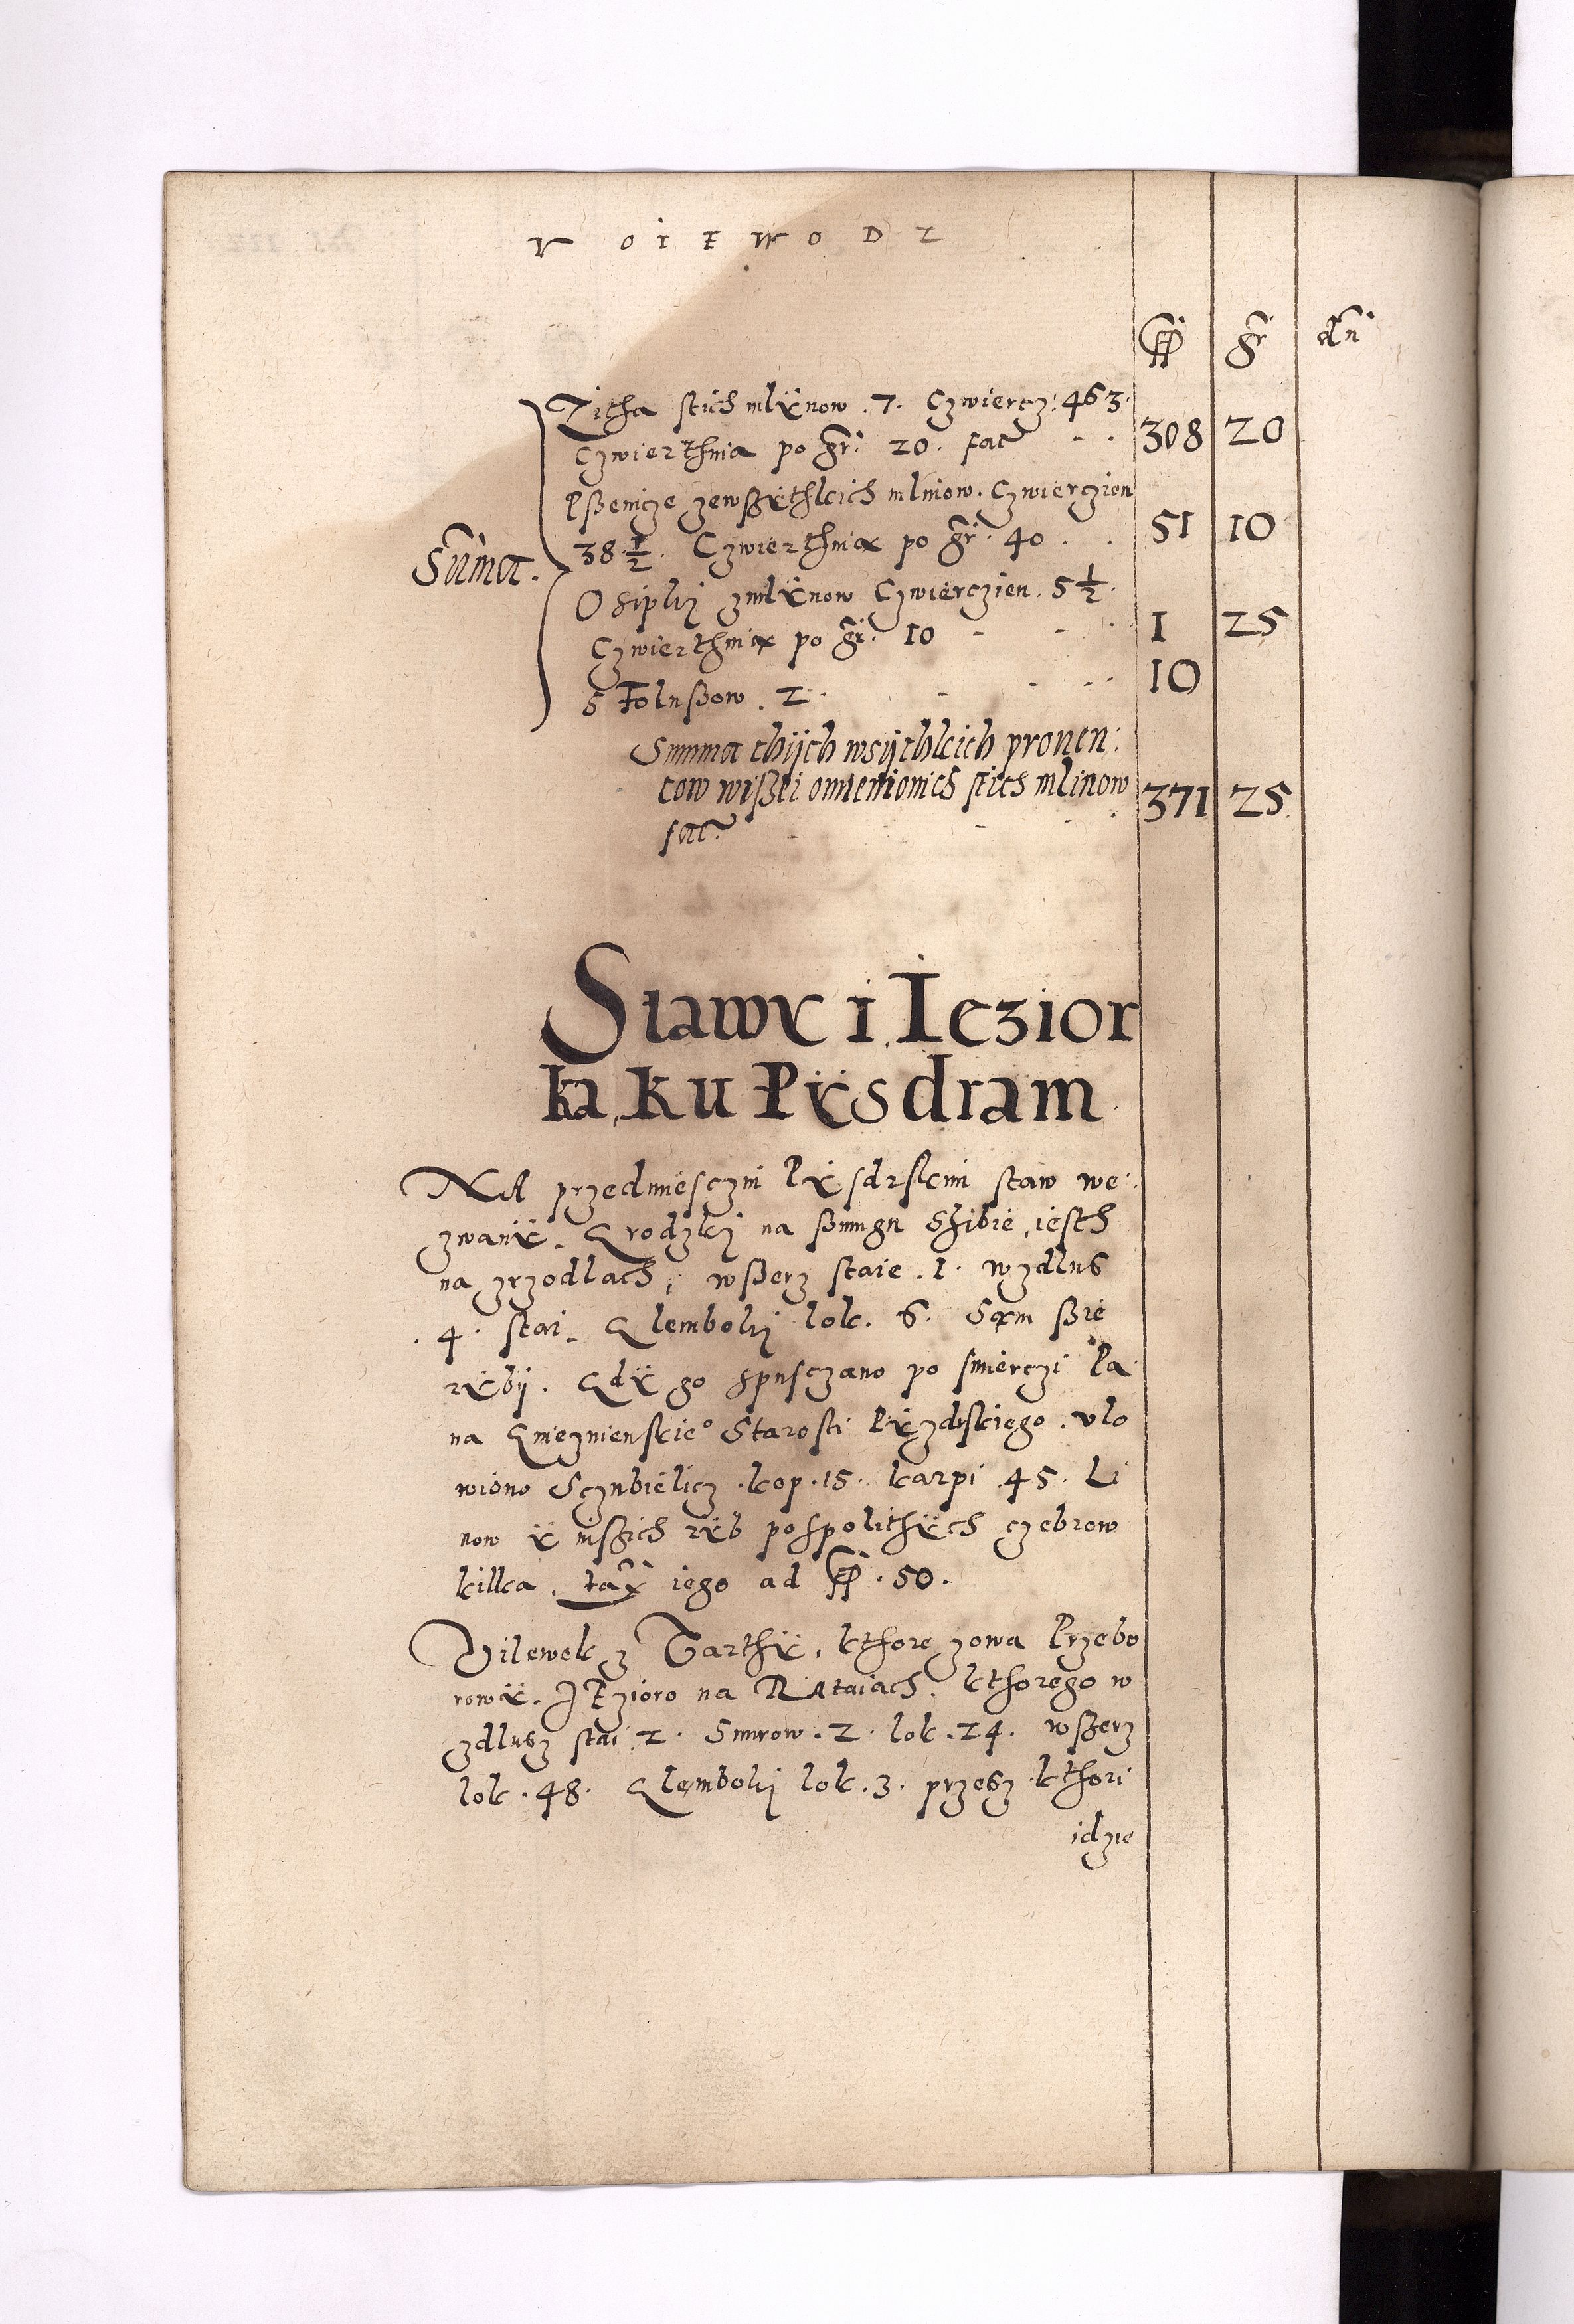 V O I E W O D Z
ff gr dn
Zitha stich mlÿnow . 7 . Czwiercz: 463.
Czwierthnia po gr. 20. fac 308 20
Pßenicze zewßÿthkich mlinow. Czwierczien
38 1/2. Czwierthnia po gr. 40 . . 51 10
Summa.
Osipky zmlÿnow Czwierczien. 5 1/2.
Czwierthnia po gr. 10 1 25
S Folußow . 2 . 10
Summa thÿch wsÿthkich prouen:
tow wißei omienionich stich mlinow 371 25
fac
Stawÿ i Iezior
ka, ku Pÿsdram
NA przedmiesczui Pÿsdrskim staw we.
zwanÿ. Grodzkj na ßmugu Skibie, iesth
na zrzodlach, wßerz staie . 1 . wzdlus
. 4 . stai. Glembokj lok. 6. Sam ßie
rÿbij. Gdÿ go spusczano po smierczi Pa
na Gnieznienskieo Starosti Pÿzdrskiego. vlo
wiono Sczubielicz . kop . 15. karpi . 45. Li
now ÿ inßich rÿb pospolithÿch czebrow
kilka. tax iego ad ff . 50.
Dilewek z Barthÿ, kthore zowa Przebo
rowÿ. IEzioro na RAtaiach. kthorego w
zdlusz stai . 2 . Snurow . 2 . lok . 24. wßerz
lok . 48. Glembokj lok . 3 . przesz kthori
idzie